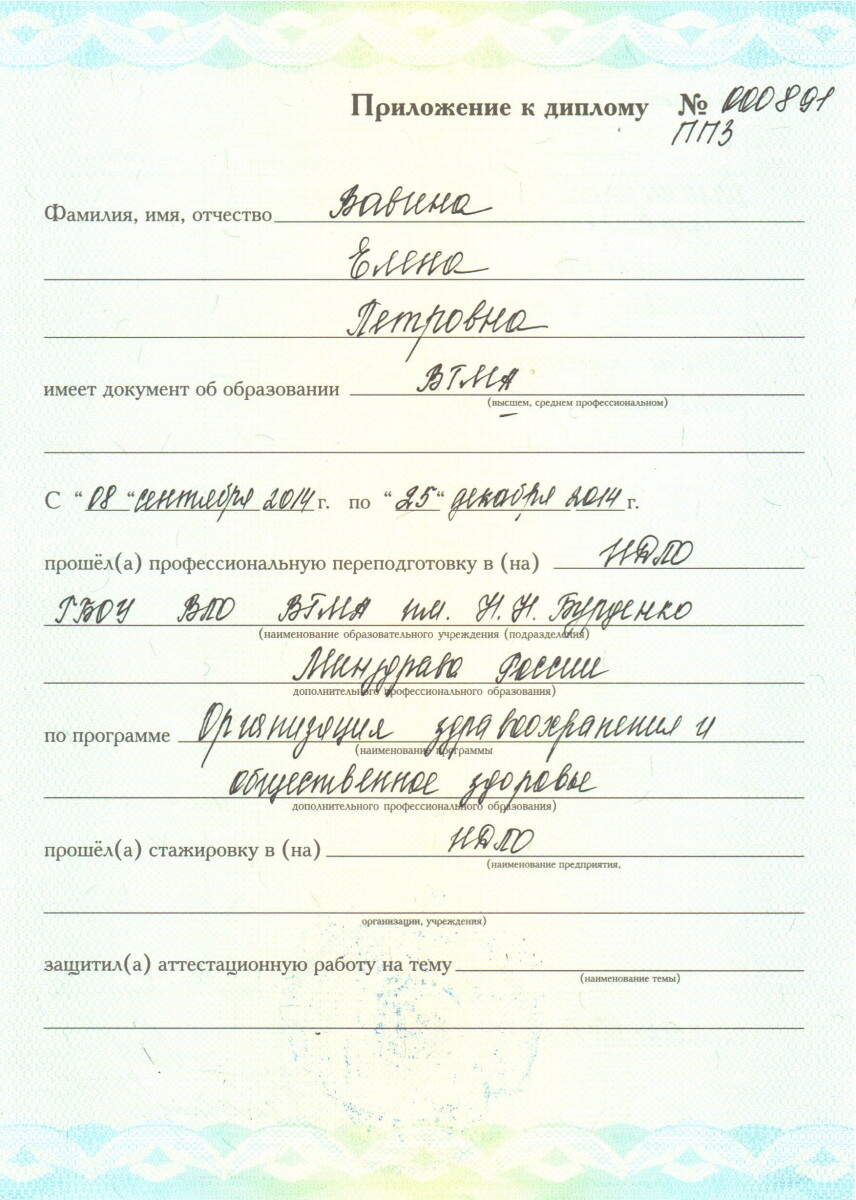 Приложение к диплому № 000891
ППЗ
Фамилия, имя, отчество Вавина
Елена
Петровна
имеет документ об образовании ВГМА
(высшем, среднем профессиональном)
С "08" сентября 2014 г. по "25" декабря 2014 г.
прошёл(а) профессиональную переподготовку в (на) ИДПО
ГБОУ ВПО ВГМА им. Н.Н. Бурденко
(наименование образовательного учреждения (подразделения)
Минздрава России
дополнительного профессионального образования)
по программе Организация здравоохранения и
(наименование программы
общественное здоровье
дополнительного профессионального образования)
прошёл(а) стажировку в (на) ИДПО
(наименование предприятия,
организации, учреждения)
защитил(а) аттестационную работу на тему
(наименование темы)